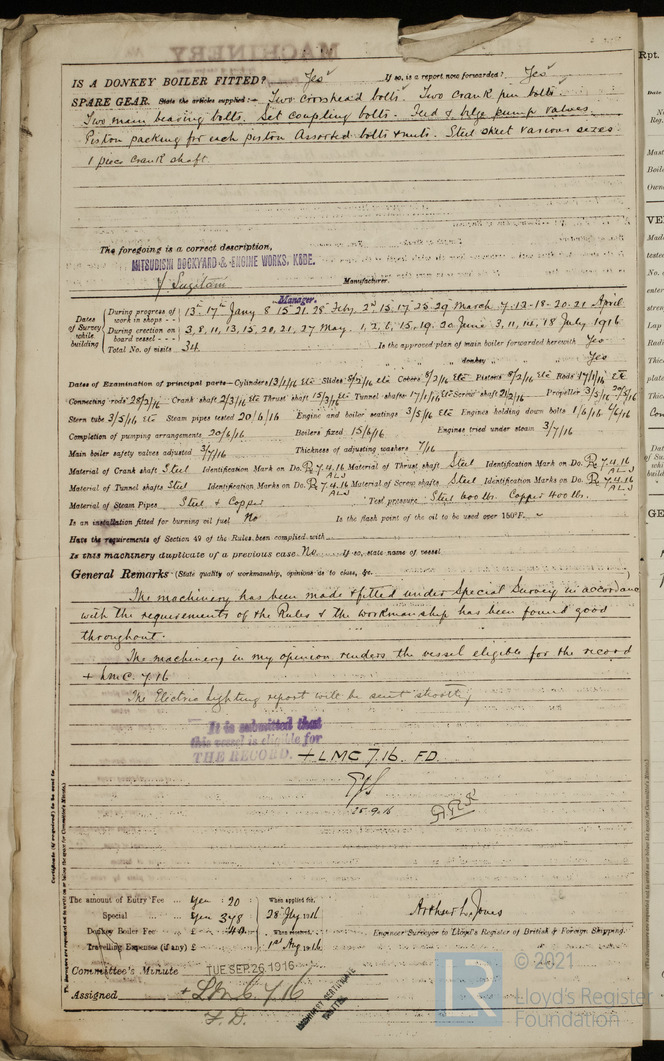 IS A DONKEY BOILER FITTED? Yes If so, is a report now forwarded? Yes
SPARE GEAR. State the articles supplied:— Two crosshead bolts Two crank pin bolts.
Two main bearing bolts. Set coupling bolts. Feed & bilge pump valves.
Piston packing for each piston Assorted bolts & nuts. Steel sheet various sizes.
1 piece Crank shaft.
The foregoing is a correct description,
MITSUBISHI DOCKYARD & ENGINE WORKS, KOBE.
Manufacturer.
Manager.
Dates of Survey while building
During progress of work in shops - - 13th 17th Jany 8 15 21 28 Feby 2nd 15 17 25 29 March 7.12.18.20.21 April
During erection on board vessel - - - 3, 8, 11, 13, 15, 20, 21, 27 May. 1, 2, 6, 15, 19, 20 June 3, 11, 14, 18 July 1916
Total No. of visits 34. Is the approved plan of main boiler forwarded herewith Yes
" " " donkey " " " Yes
Dates of Examination of principal parts—Cylinders 13/1/16 etc Slides 8/2/16 etc Covers 8/2/16 etc Pistons 8/2/16 etc Rods 17/1/16 etc
Connecting rods 28/2/16 Crank shaft 2/3/16 etc Thrust shaft 15/3/16 etc Tunnel shafts 17/1/16 etc Screw shaft 21/2/16 Propeller 3/5/16 20/5/16
Stern tube 3/5/16 etc Steam pipes tested 20/6/16 Engine and boiler seatings 3/5/16 etc Engines holding down bolts 1/6/16 6/6/16
Completion of pumping arrangements 20/6/16 Boilers fixed 15/6/16 Engines tried under steam 3/7/16
Main boiler safety valves adjusted 3/7/16 Thickness of adjusting washers 7/16
Material of Crank shaft Steel Identification Mark on Do. 7.4.16 ALJ Material of Thrust shaft Steel Identification Mark on Do. 7.4.16 ALJ
Material of Tunnel shafts Steel Identification Marks on Do. 7.4.16 ALJ Material of Screw shafts Steel Identification Marks on Do. 7.4.16 ALJ
Material of Steam Pipes Steel & Copper Test pressure Steel 600 lbs. Copper 400 lbs.
Is an installation fitted for burning oil fuel No Is the flash point of the oil to be used over 150°F. ~
Have the requirements of Section 49 of the Rules been complied with
Is this machinery duplicate of a previous case No If so, state name of vessel
General Remarks (State quality of workmanship, opinions as to class, &c.
The machinery has been made & fitted under Special Survey in accordance
with the requirements of the Rules & the workmanship has been found good
throughout.
The machinery in my opinion renders the vessel eligible for the record
+ LMC. 7.16
The Electric Lighting report will be sent shortly
It is submitted that
this vessel is eligible for
THE RECORD. + LMC 7.16. FD.
25.9.16
The amount of Entry Fee .. Yen : 20 When applied for,
Special .. .. Yen 378 28 July 1916
Donkey Boiler Fee .. £ 42 When received,
Travelling Expenses (if any) £ 1st Aug 1916
Arthur L. Jones
Engineer Surveyor to Lloyd's Register of British & Foreign Shipping.
Committee's Minute TUE. SEP. 26. 1916
Assigned + LMC 7.16
F.D.
MACHINERY CERTIFICATE
WRITTEN
LR
© 2021
Lloyd's Register
Foundation